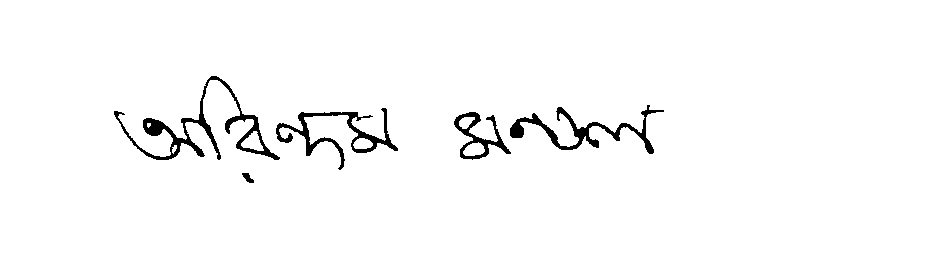 অরিন্দম মণ্ডল